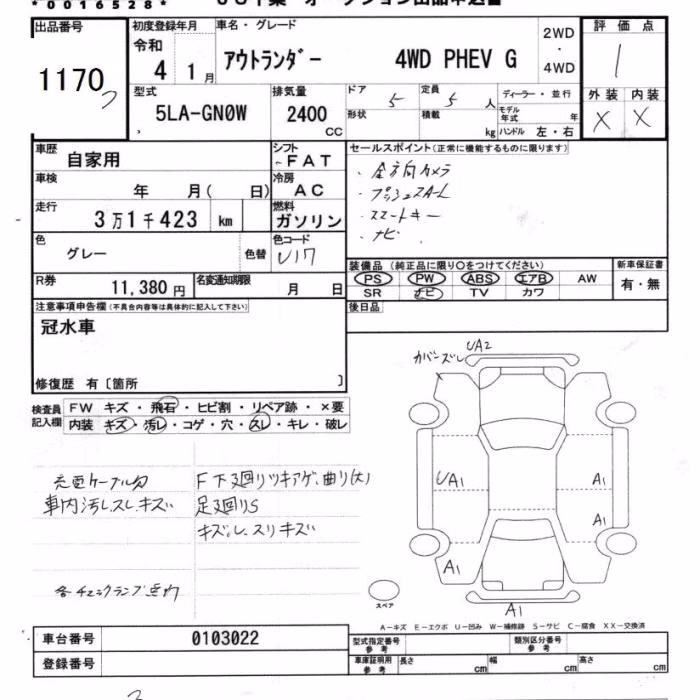 *0016528*
出品番号
1170
初度登録年月
令和
4 1月
車名・グレード
アウトランダー 4WD PHEV G
2WD
・
4WD
評価点
1
外装 内装
X X
型式
5LA-GN0W
排気量
2400
CC
ドア 5
形状
定員 5人
積載 kg
ディーラー・並行
モデル年式 年
ハンドル 左・右
車歴 自家用
シフト
FAT
車検 年 月( 日)
冷房
AC
走行 3万1千423 km
燃料
ガソリン
色 グレー 色替
色コード
U17
R券 11,380円
名変通知期限 月 日
セールスポイント(正常に機能するものに限ります)
・全方向カメラ
・スマートキー
・ナビ
装備品(純正品に限り○をつけてください)
PS PW ABS エアB AW
SR ナビ TV カワ
新車保証書
有・無
後日品
注意事項申告欄(不具合内容等は具体的に記入して下さい)
冠水車
修復歴 有〔箇所 〕
検査員記入欄
FW キズ・飛石・ヒビ割・リペア跡・×要
内装 キズ・汚レ・コゲ・穴・スレ・キレ・破レ
充電ケーブル欠
車内汚レスレキズ
各チェックランプ点灯
F下廻リツキアゲ、曲リ(大)
足廻リS
キズレ、スリキズ
カバーズレ
UA2
UA1
A1
A1
A1
A1
スペア
A−キズ E−エクボ U−凹み W−補修跡 S−サビ C−腐食 XX−交換済
車台番号 0103022
登録番号
型式指定番号
参考
類別区分番号
参考
車庫証明用
参考
長さ cm 幅 cm 高さ cm